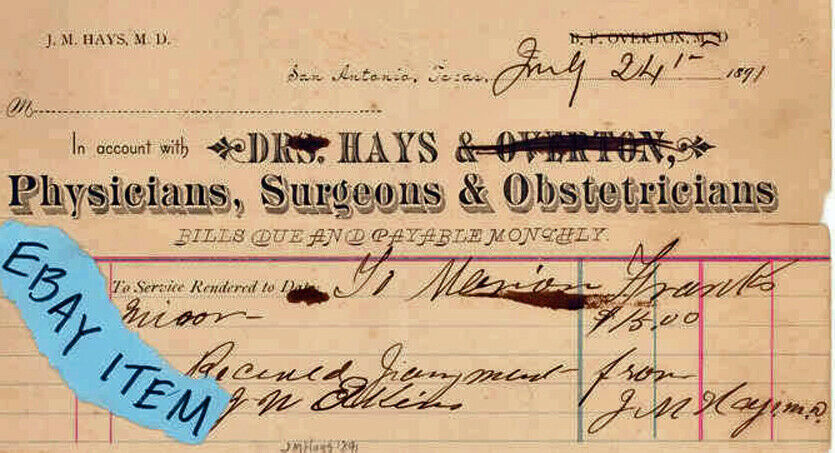 J. M. HAYS, M. D.
B. F. OVERTON, M. D
San Antonio, Texas, July 24th 1891
M
In account with DRS. HAYS & OVERTON,
Physicians, Surgeons & Obstetricians
BILLS DUE AND PAYABLE MONTHLY.
To Service Rendered to Date To Marion Franks
minor $15.00
Received payment from
J N Elkins J. M Hays M.D.
EBAY ITEM
J M Hays '91